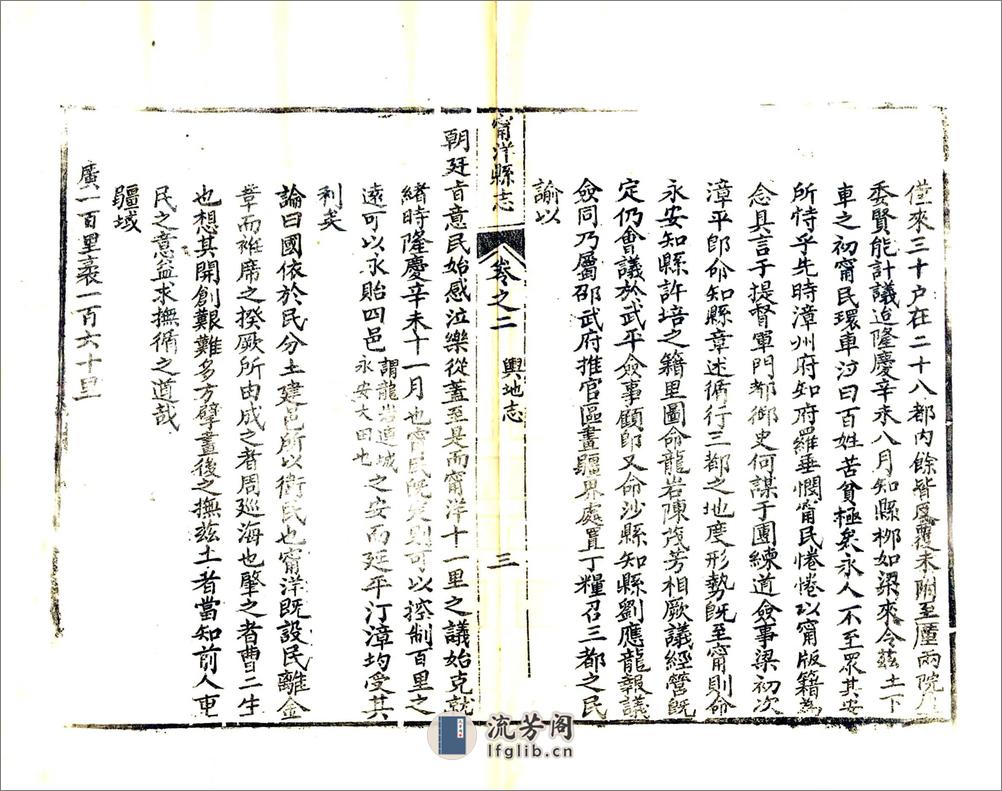 僅來三十户在二十八都内餘皆反覆未附至厪兩院
委賢能計議迨隆慶辛未八月知縣栁如梁來令兹土下
車之初甯民環車泣曰百姓苦貧極矣永人不至眾其安
所恃乎先時漳州府知府羅垂憫甯民惓惓以甯版籍為
念具言于提督軍門都御史何謀于團練道僉事梁初次
漳平即命知縣章述循行三都之地度形勢旣至甯則命
永安知縣許培之籍里圖命龍岩陳茂芳相厥議經營旣
定仍會議於武平僉事顧郎又命沙縣知縣劉應龍報議
僉同乃屬邵武府推官區畫疆界處置丁糧召三都之民
諭以
甯洋縣志
卷之二
輿地志
三
朝廷旨意民始感泣樂從蓋至是而甯洋十一里之議始克就
緒時隆慶辛未十一月也甯民旣定則可以控制百里之
遠可以永貽四邑謂龍岩連城永安大田也之安而延平汀漳均受其
利矣
論曰國依於民分土建邑所以衞民也甯洋旣設民離金
革而袵席之揆厥所由成之者周巡海也肇之者曹二生
也想其開創艱難多方擘畫後之撫兹土者當知前人重
民之意益求撫循之道哉
疆域
廣一百里袤一百六十里
流芳阁
lfglib.cn